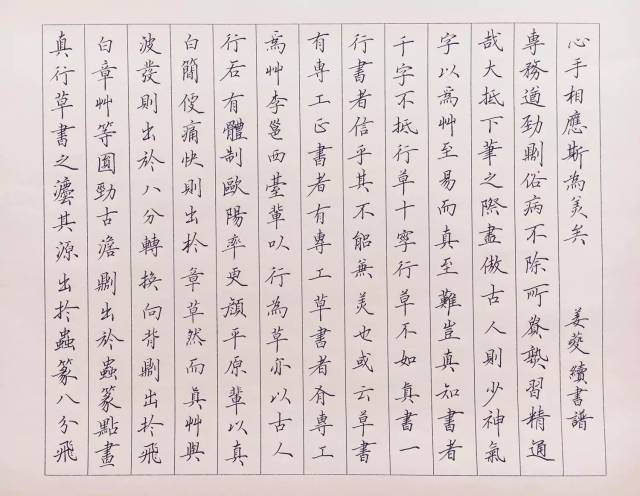 真行草書之灋其源出於蟲篆八分飛
白章艸等圎勁古澹劘出於蟲篆點畫
波發則出於八分轉換向背劘出於飛
白簡便痛快則出於章草然而真艸與
行各有體制歐陽率更顏平原輩以真
為艸李邕西臺輩以行為草亦以古人
有專工正書者有專工草書者有專工
行書者信乎其不能兼美也或云草書
千字不抵行草十字行草不如真書一
字以為艸至易而真至難豈真知書者
哉大抵下筆之際盡倣古人則少神氣
專務遒勁劘俗病不除所貴熟習精通
心手相應斯為美矣 姜夔續書譜